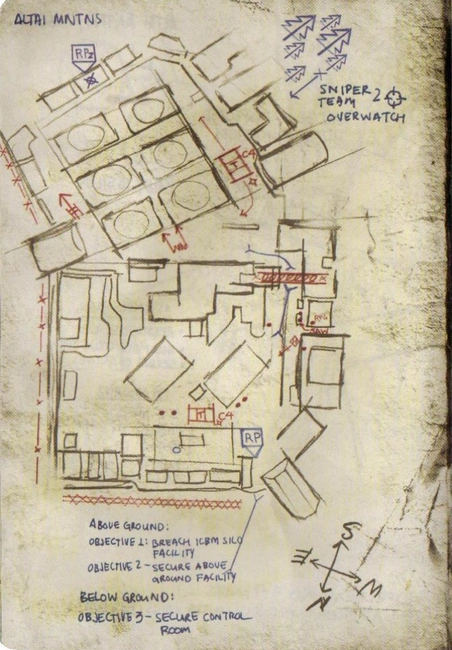 ALTAI MNTNS
RP2
SNIPER
TEAM 2
OVERWATCH
C4
H
H
RPG
H C4
RP
ABOVE GROUND:
OBJECTIVE 1: BREACH ICBM SILO
FACILITY
OBJECTIVE 2 - SECURE ABOVE
GROUND FACILITY
BELOW GROUND:
OBJECTIVE 3 - SECURE CONTROL
ROOM
S
E
W
N